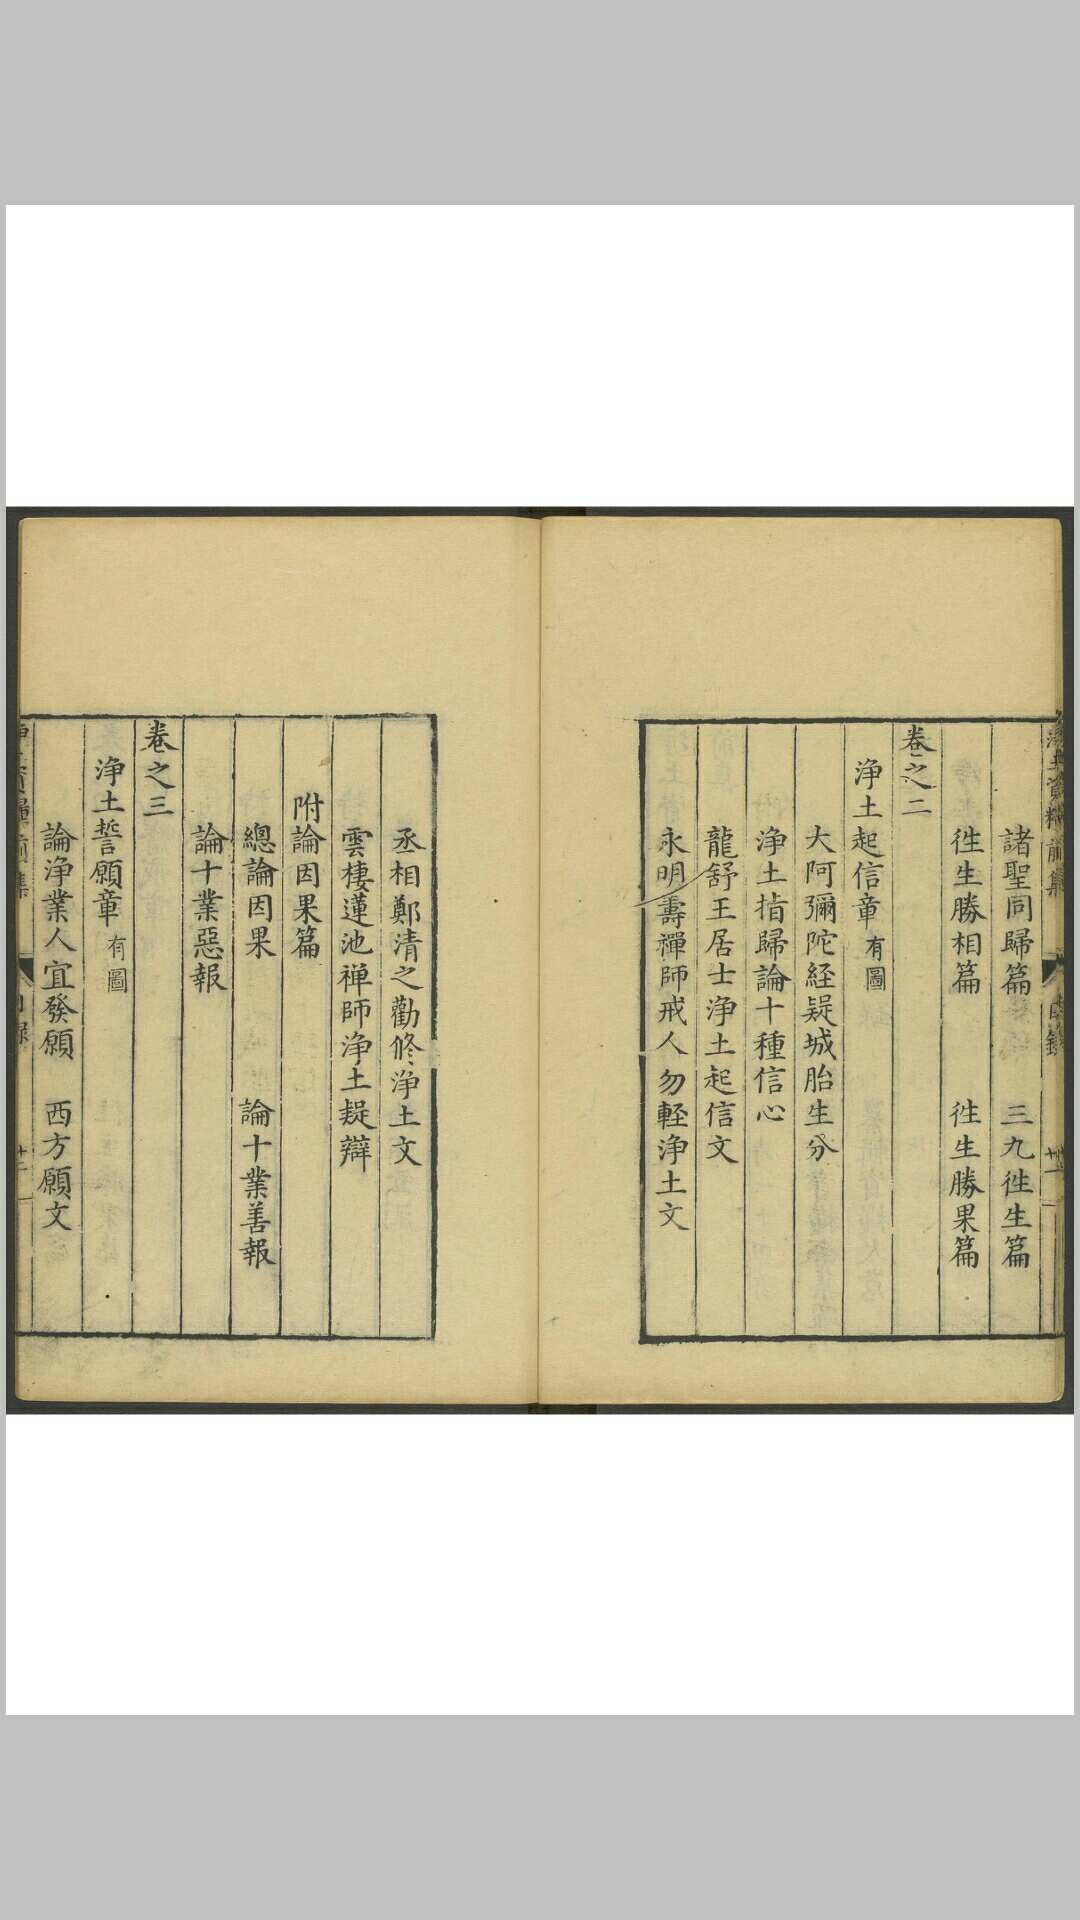 諸聖同歸篇　三九徃生篇
徃生勝相篇　徃生勝果篇
卷之二
淨土起信章 有圖
大阿彌陀経疑城胎生分
淨土指歸論十種信心
龍舒王居士淨土起信文
永明壽禪師戒人勿輕淨土文
丞相鄭清之勸修淨土文
雲棲蓮池禅師淨土疑辯
附論因果篇
總論因果　論十業善報
論十業惡報
卷之三
淨土誓願章 有圖
論淨業人宜發願　西方願文